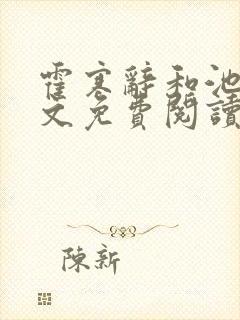 霍寒辭和池
文免費閱讀
陳新